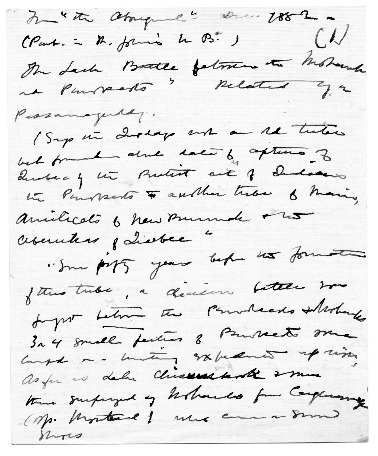 From "the Aboriginal" Dec. 1882 -
(Pub. in St. John's N. B.) (1)
The Last Battle between the Mohawks
and Penobscots" Related by a
Passamaquoddy.
(Says the Indians not an old tribe
but formed about date of "capture of
Quebec by the British out of Indians
the Penobscots & another tribe of Maine,
of New Brunswick & the
of Quebec"
"Some fifty years before the formation
of this tribe, a decisive battle was
fought between the Penobscots & Mohawks
3 or 4 small parties of Penobscots were
on a hunting expedition up river,
As far as Lake & were
there surprised by Mohawks from
(opp. Montreal) who came on snow
shoes